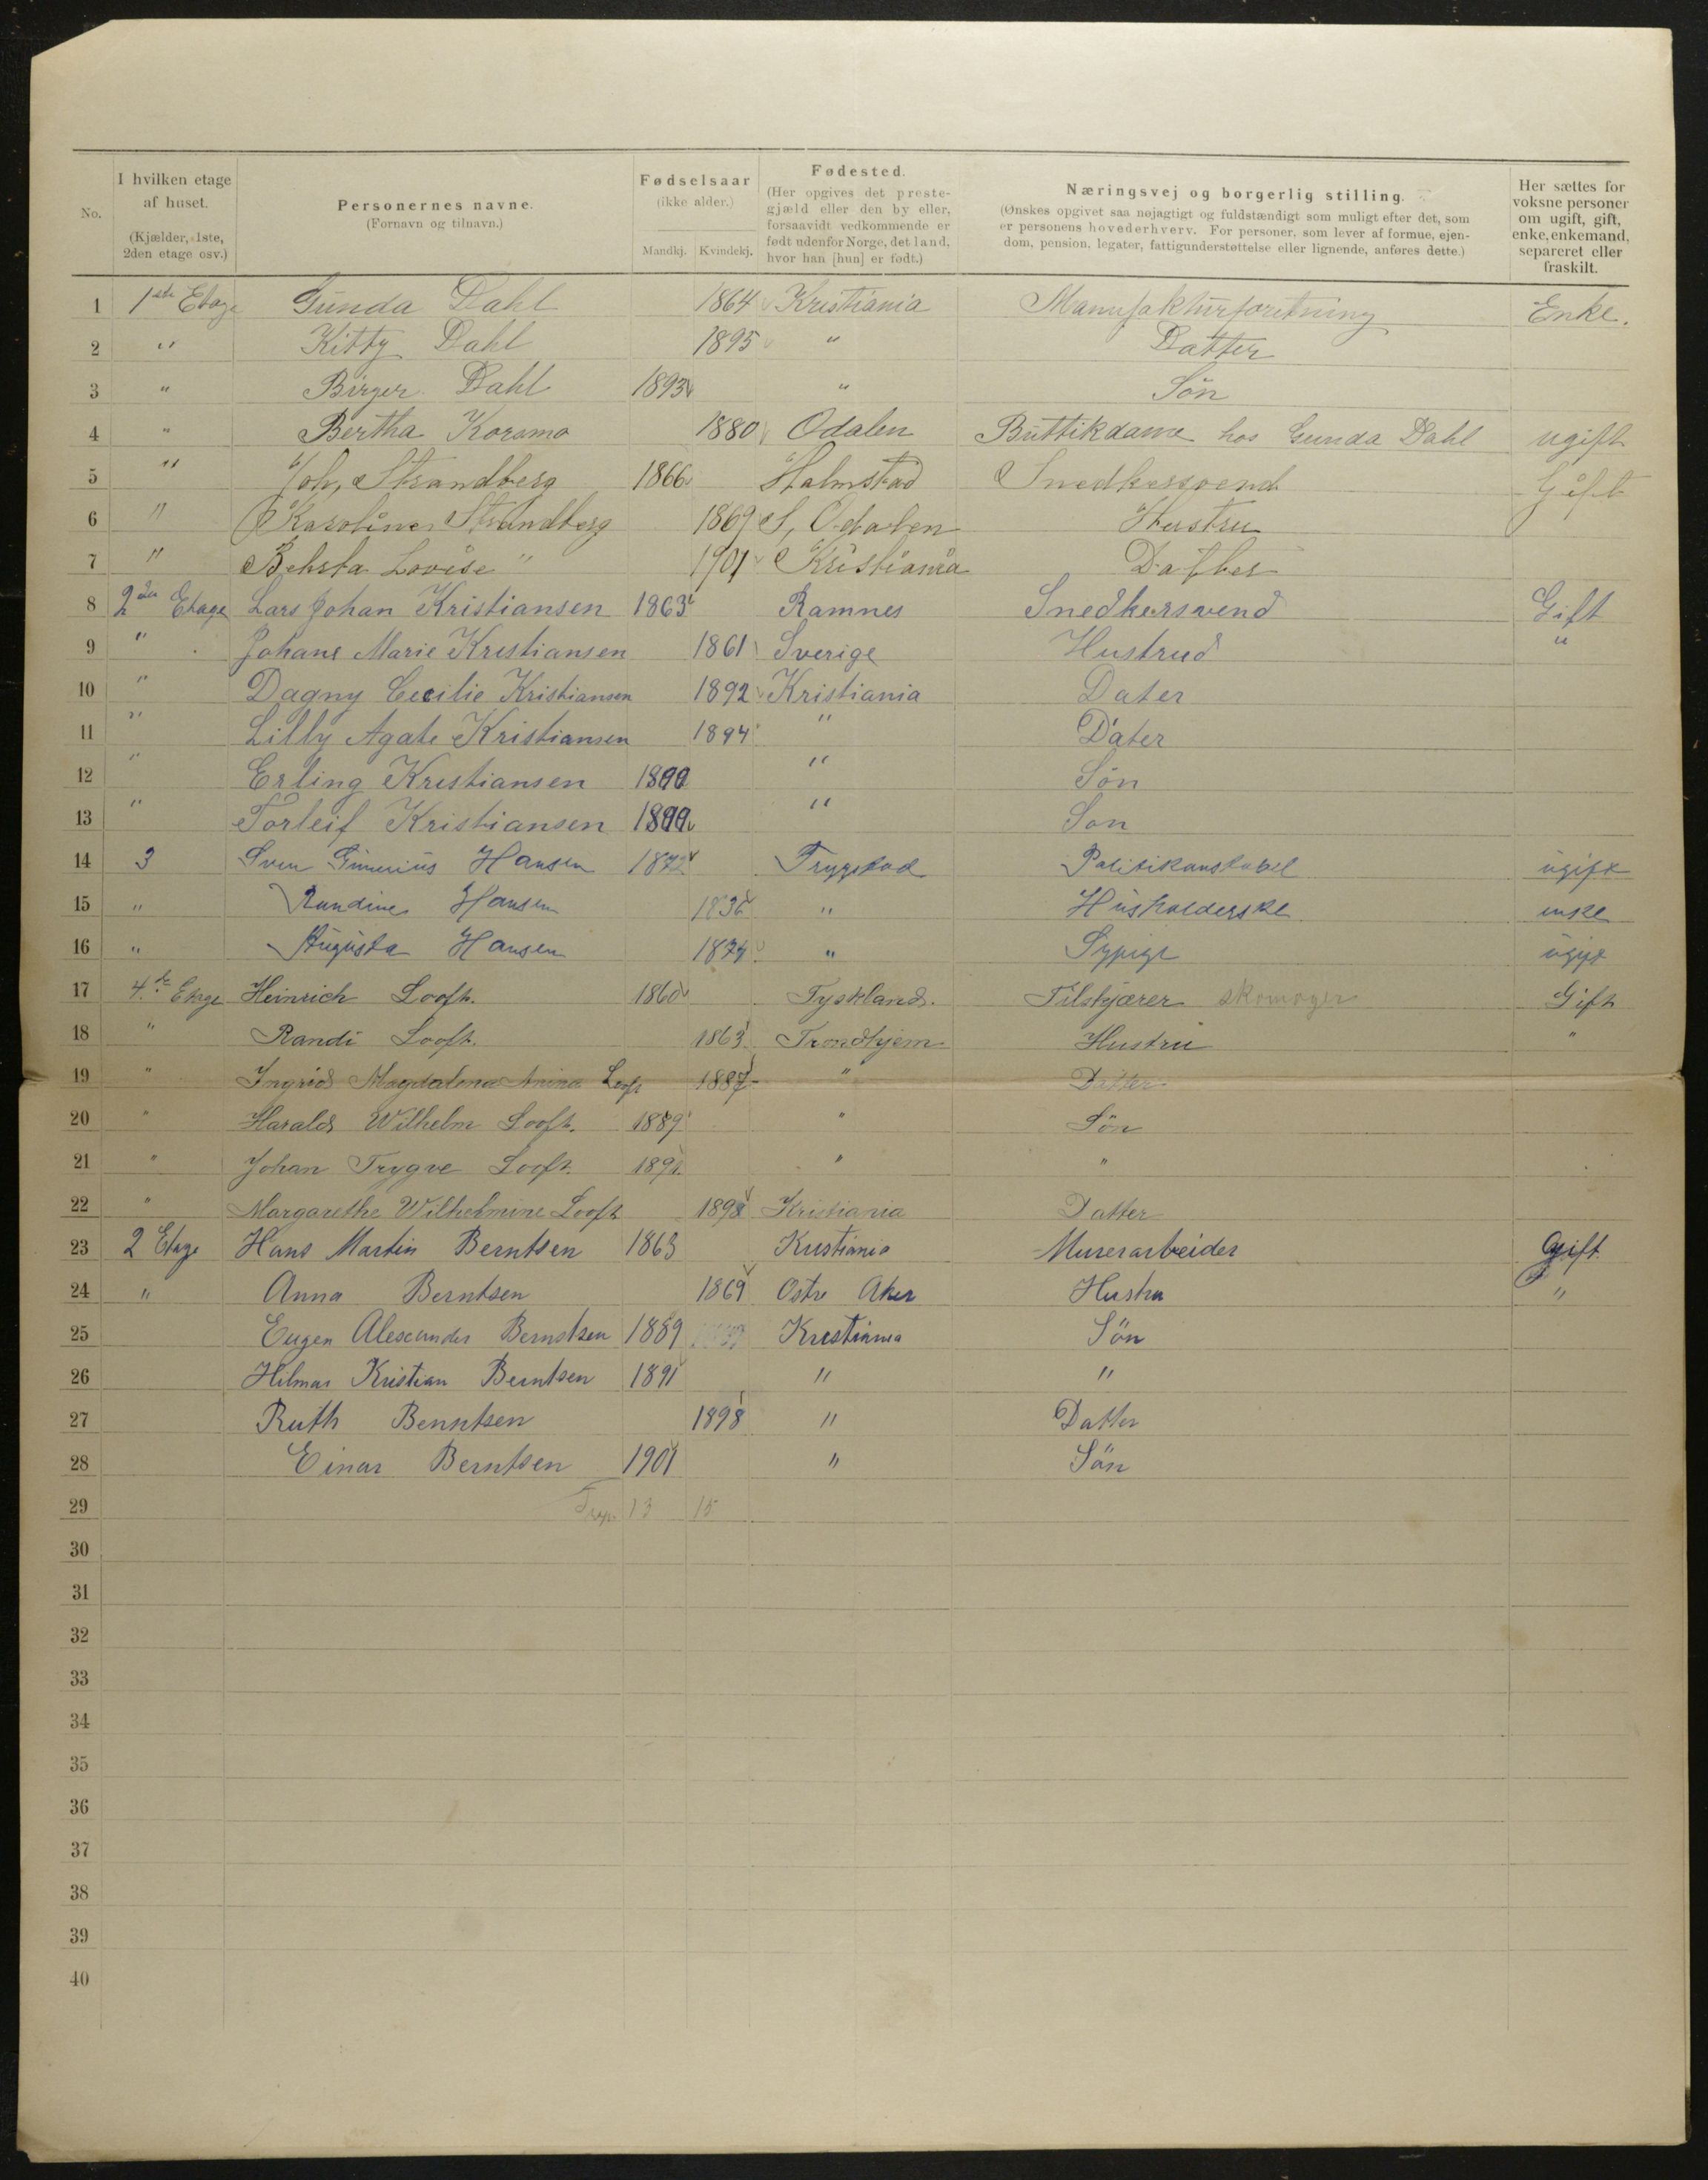 No.
I hvilken etage af huset. (Kjælder, 1ste, 2den etage osv.)
Personernes navne. (Fornavn og tilnavn.)
Fødselsaar (ikke alder.) Mandkj. Kvindekj.
Fødested. (Her opgives det prestegjæld eller den by eller, forsaavidt vedkommende er født udenfor Norge, det land, hvor han [hun] er født.)
Næringsvej og borgerlig stilling. (Ønskes opgivet saa nøjagtigt og fuldstændigt som muligt efter det, som er personens hovederhverv. For personer, som lever af formue, ejendom, pension, legater, fattigunderstøttelse eller lignende, anføres dette.)
Her sættes for voksne personer om ugift, gift, enke, enkemand, separeret eller fraskilt.
1 1ste Etage Gunda Dahl 1864 Kristiania Manufakturforetning Enke.
2 " Kitty Dahl 1895 " Datter
3 " Birger Dahl 1893 " Søn
4 " Bertha Korsmo 1880 Odalen Buttikdame hos Gunda Dahl ugift
5 " Joh, Strandberg 1866 Halmstad Snedkersvend Gift
6 " Karoline Strandberg 1869 S, Odalen Hustru
7 " Lovise " 1901 Kristiania Datter
8 2den Etage Lars Johan Kristiansen 1863 Ramnes Snedkersvend Gift
9 " Johane Marie Kristiansen 1861 Sverige Hustrud "
10 " Dagny Cecilie Kristiansen 1892 Kristiania Dater
11 " Lilly Agate Kristiansen 1894 " Dater
12 " Erling Kristiansen " Søn
13 " Torleif Kristiansen 1899 " Søn
14 3 Sven Hansen 1872 Trygstad Politikonstabel ugift
15 " Randine Hansen 1836 " Husholderske enke
16 " Augusta Hansen 1874 " Sypige ugift
17 4de Etage Heinrich Looft. 1860 Tyskland. Tilskjærer skomager Gift
18 " Randi Looft. 1863 Trondhjem Hustru "
19 " Ingrid Magdalena Anina Looft 1887 " Datter
20 " Harald Wilhelm Looft. 1889 " Søn
21 " Johan Trygve Looft. 1891. " "
22 " Margarethe Wilhelmine Looft 1898 Kristiania Datter
23 2 Etage Hans Martin Berntsen 1863 Kristiania Murerarbeider Gift.
24 " Anna Berntsen 1869 Østre Aker Hustru "
25 Eugen Alexander Berntsen 1889 Kristiania Søn
26 Hilmar Kristian Berntsen 1891 " "
27 Ruth Berntsen 1898 " Datter
28 Einar Berntsen 1901 " Søn
29 13 15
30
31
32
33
34
35
36
37
38
39
40